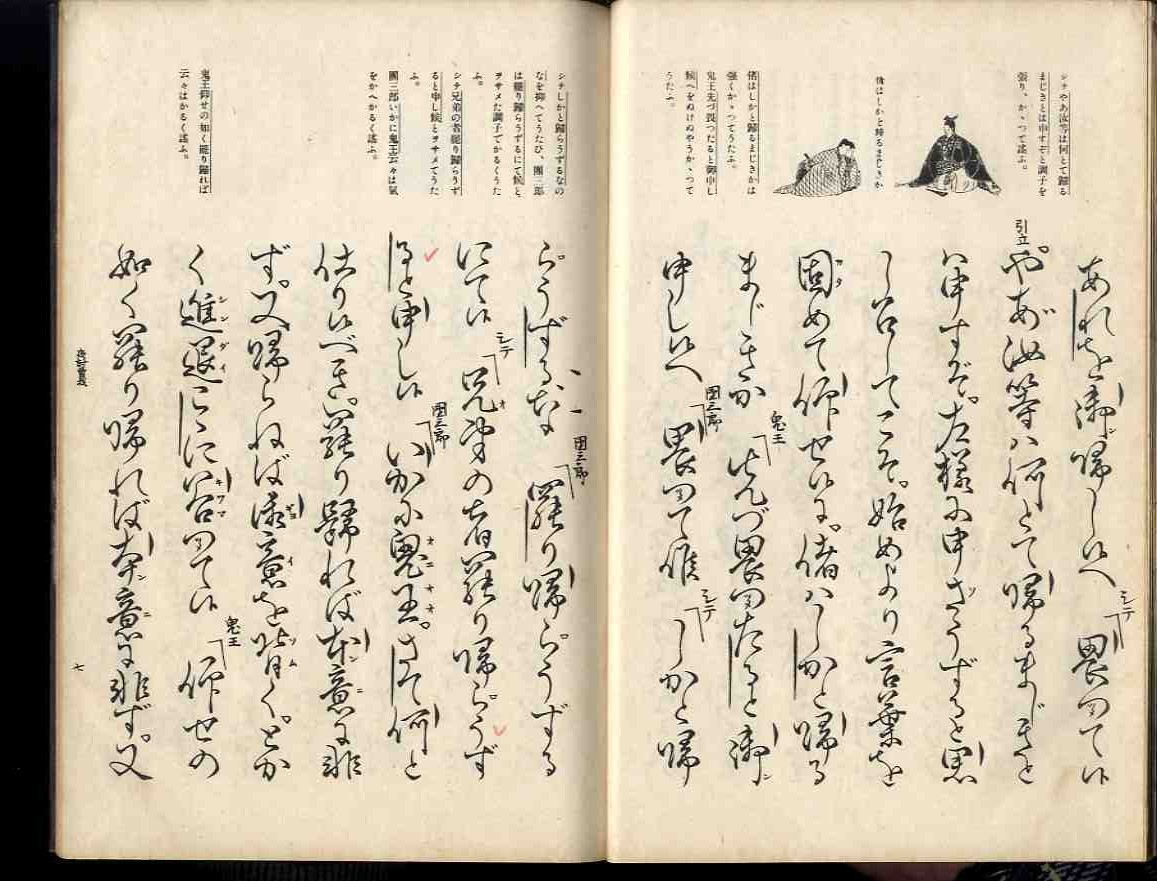 シテやあ汝等は何とて歸る
まじきとは申すぞと調子を
張り、かゝつて謠ふ。
偖はしかと歸るまじきか
偖はしかと歸るまじきかは
强くかゝつてうたふ。
鬼王先づ畏つたると御申し
候へをぬけぬやうかゝつて
うたふ。
あれを御歸し候へ
シテ
畏つて候
引立
やあ汝等は何とて歸るまじきと
は申すぞ。左様に申さうずると思
し召してこそ。始めより言葉を
固めて仰せ候に。偖はしかと歸る
まじきか
鬼王
先づ畏つたると御
申し候へ
團三郎
畏つて候
シテ
しかと歸
シテしかと歸らうずるなの
なを抑へてうたひ、團三郎
は罷り歸らうずるにて候と
ヲサメた調子でかるくうた
ふ。
シテ兄弟の者罷り歸らうず
ると申し候とヲサメてうた
ふ。
團三郎いかに鬼王云々は氣
をかへかるく謠ふ。
鬼王仰せの如く罷り歸れば
云々はかるく謠ふ。
らうずるな
團三郎
罷り歸らうずる
にて候
シテ
兄弟の者罷り歸らうず
ると申し候
團三郎
いかに鬼王。さて何と
仕り候べき。罷り歸れば本意に非
ず。又歸らねば御意を背く。とか
く進退こゝに谷つて候
鬼王
仰せの
如く罷り歸れば本意に非ず。又
七